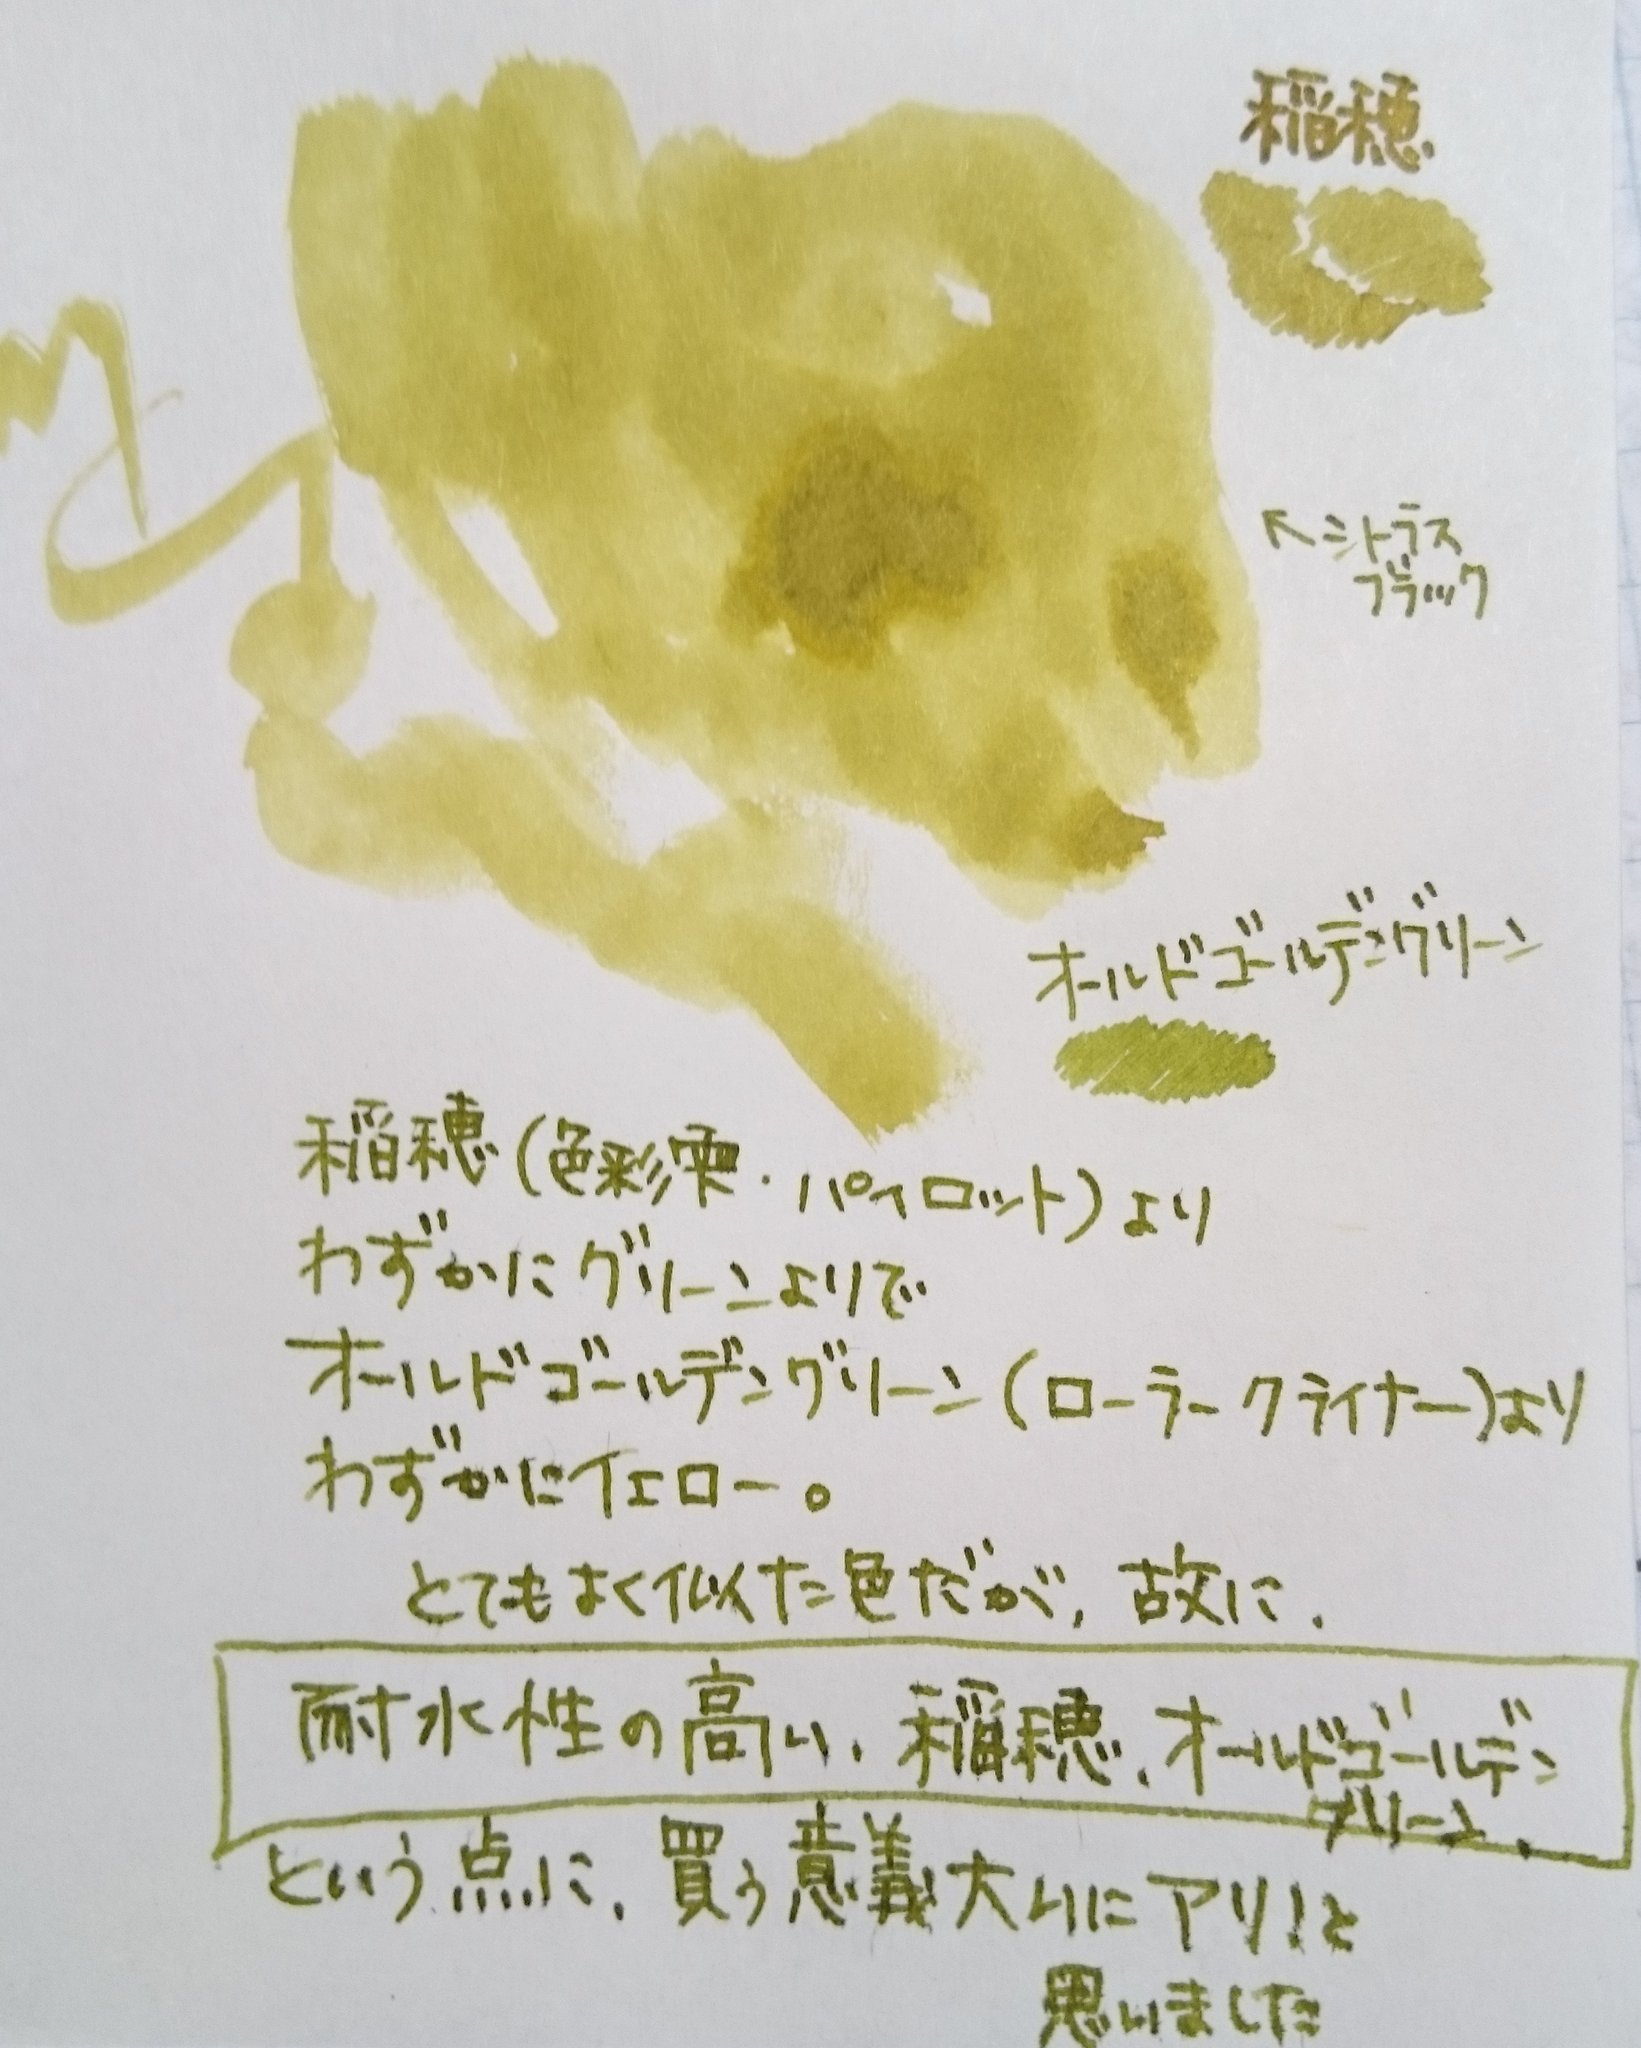 稲穂
←シトラス
ブラック
オールドゴールデングリーン
稲穂(色彩雫・パイロット)より
わずかにグリーンよりで
オールドゴールデングリーン(ローラークライナー)より
わずかにイエロー。
とてもよく似た色だが、故に、
耐水性の高い、稲穂、オールドゴールデン
グリーン、
という点に、買う意義大いにアリ!と
思いました